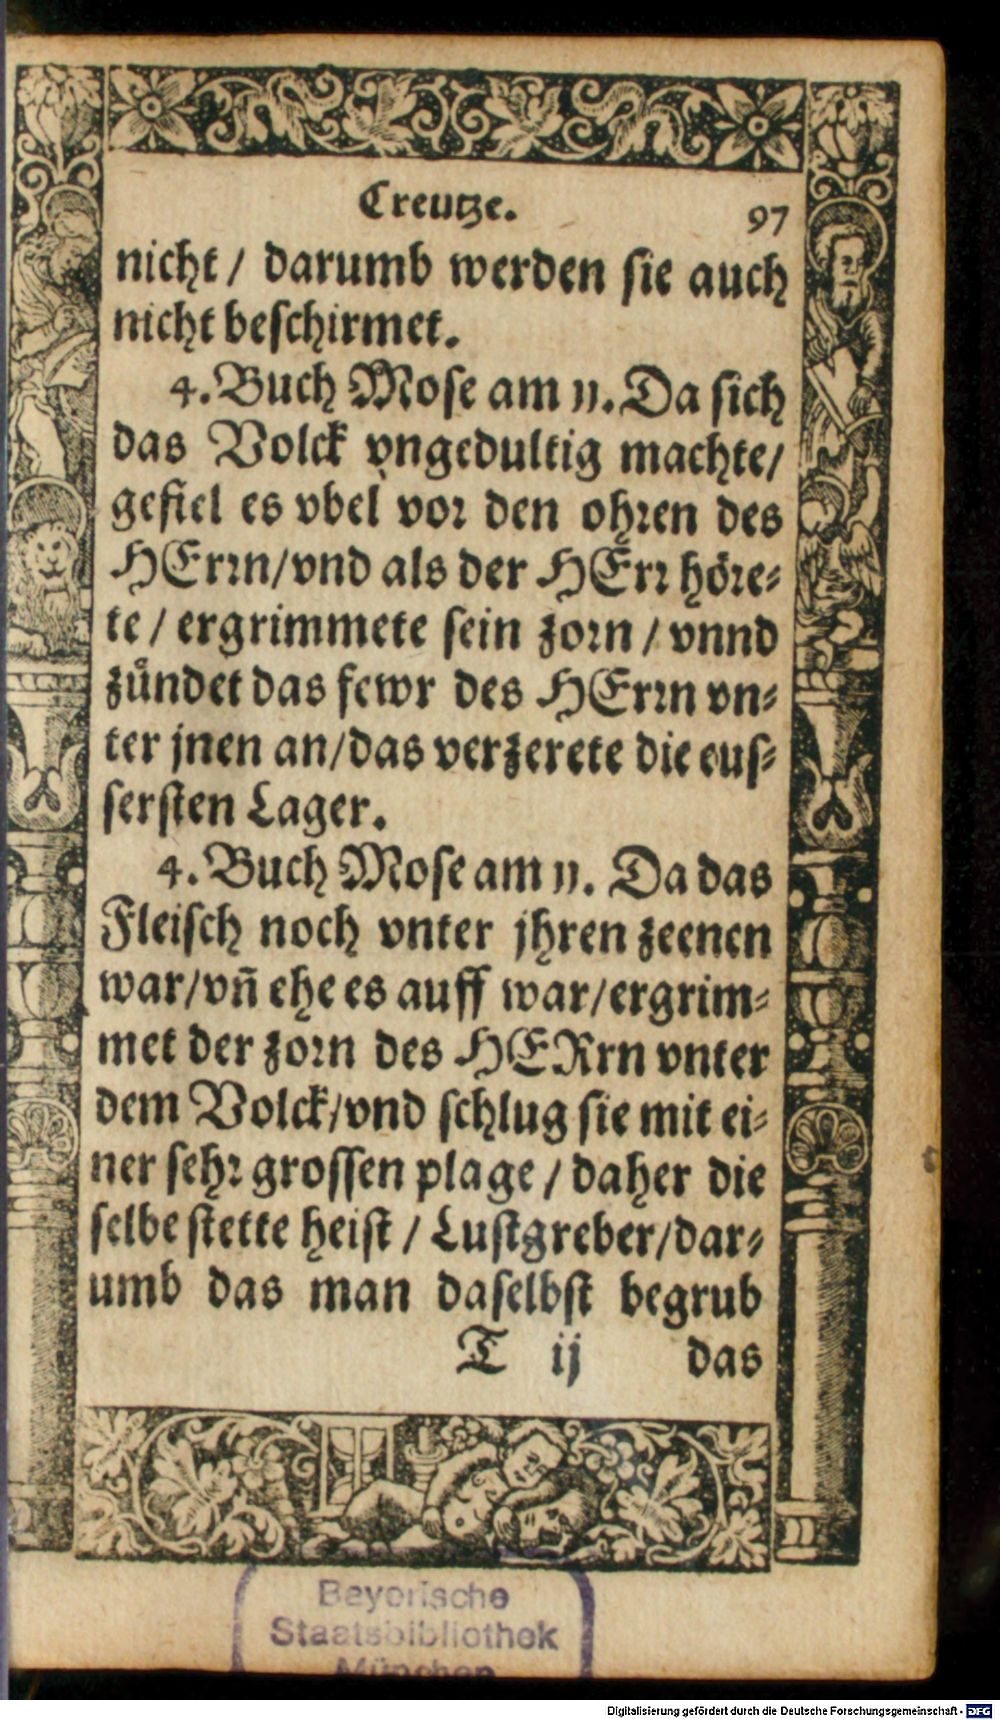 Creutze.
97
nicht / darumb werden sie auch
nicht beschirmet.
4. Buch Mose am 11. Da sich
das Volck vngedultig machte/
gefiel es vbel vor den ohren des
HErrn/vnd als der HErr höre-
te / ergrimmete sein zorn / vnnd
zůndet das fewr des HErrn vn-
ter jnen an/das verzerete die eus-
sersten Lager.
4. Buch Mose am 11. Da das
Fleisch noch vnter jhren zeenen
war/vñ ehe es auff war/ergrim-
met der zorn des HERrn vnter
dem Volck/vnd schlug sie mit ei-
ner sehr grossen plage / daher die
selbe stette heist / Lustgreber/dar-
umb das man daselbst begrub
T ij das
Bayerische
Staatsbibliothek
München
Digitalisierung gefördert durch die Deutsche Forschungsgemeinschaft - DFG